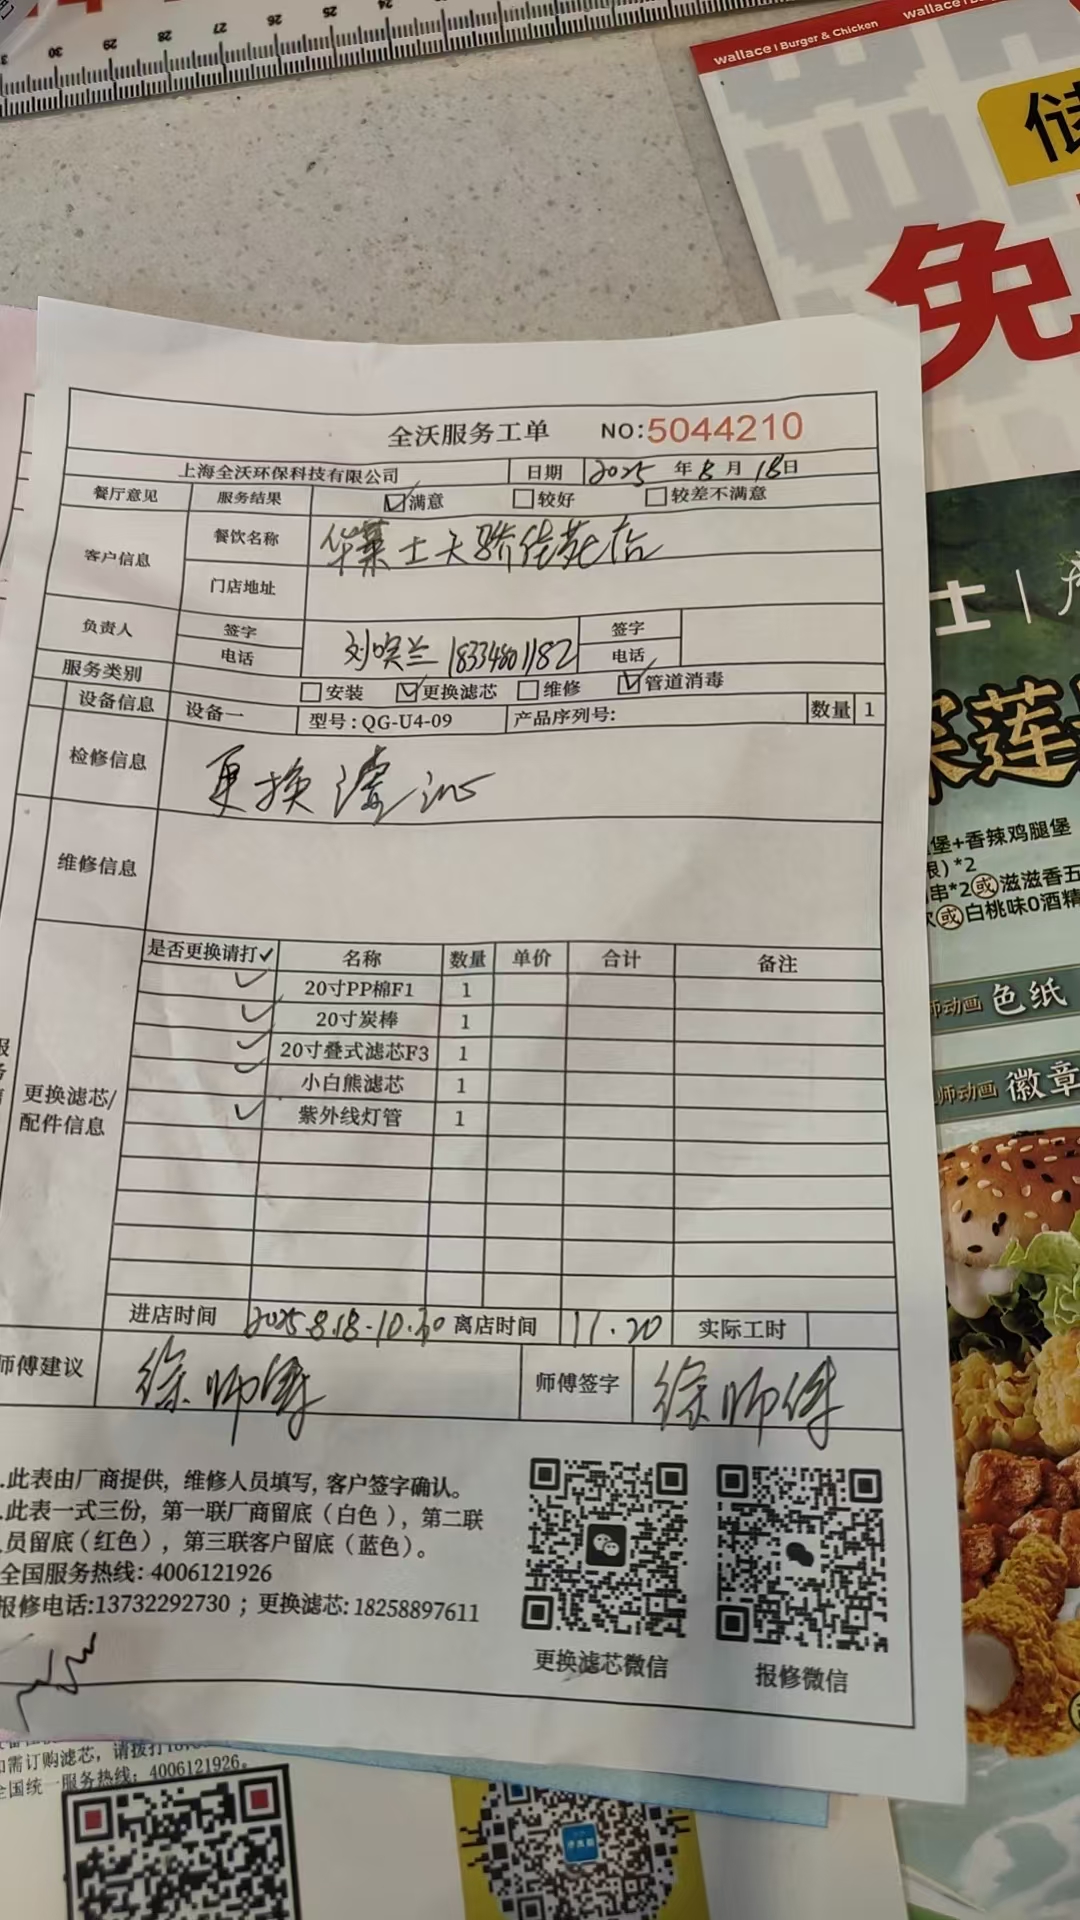 31 30 29 28 27 26 25 24 23 22
wallace | Burger & Chicken
wallace | Bu
储
免
全沃服务工单 NO:5044210
上海全沃环保科技有限公司 日期 2025 年 8 月 18日
餐厅意见 服务结果 ☑满意 □较好 □较差不满意
客户信息 餐饮名称 华莱士天骄佳苑店
门店地址
负责人 签字 签字
电话 18334801182 电话
服务类别 □安装 ☑更换滤芯 □维修 ☑管道消毒
设备信息 设备一 型号:QG-U4-09 产品序列号: 数量 1
检修信息 更换滤沁
维修信息
更换滤芯/
配件信息
是否更换请打✓ 名称 数量 单价 合计 备注
✓ 20寸PP棉F1 1
✓ 20寸炭棒 1
✓ 20寸叠式滤芯F3 1
✓ 小白熊滤芯 1
✓ 紫外线灯管 1
进店时间 2025.8.18-10.30 离店时间 11.20 实际工时
师傅建议 徐师傅 师傅签字 徐师傅
.此表由厂商提供, 维修人员填写, 客户签字确认。
.此表一式三份, 第一联厂商留底（白色）, 第二联
员留底（红色）, 第三联客户留底（蓝色）。
全国服务热线: 4006121926
报修电话:13732292730 ; 更换滤芯: 18258897611
更换滤芯微信 报修微信
如需订购滤芯, 请拨打
全国统一服务热线: 4006121926。
士 |
莲
堡+香辣鸡腿堡
)*2
串*2或滋滋香五
或白桃味0酒精
师动画 色纸
师动画 徽章